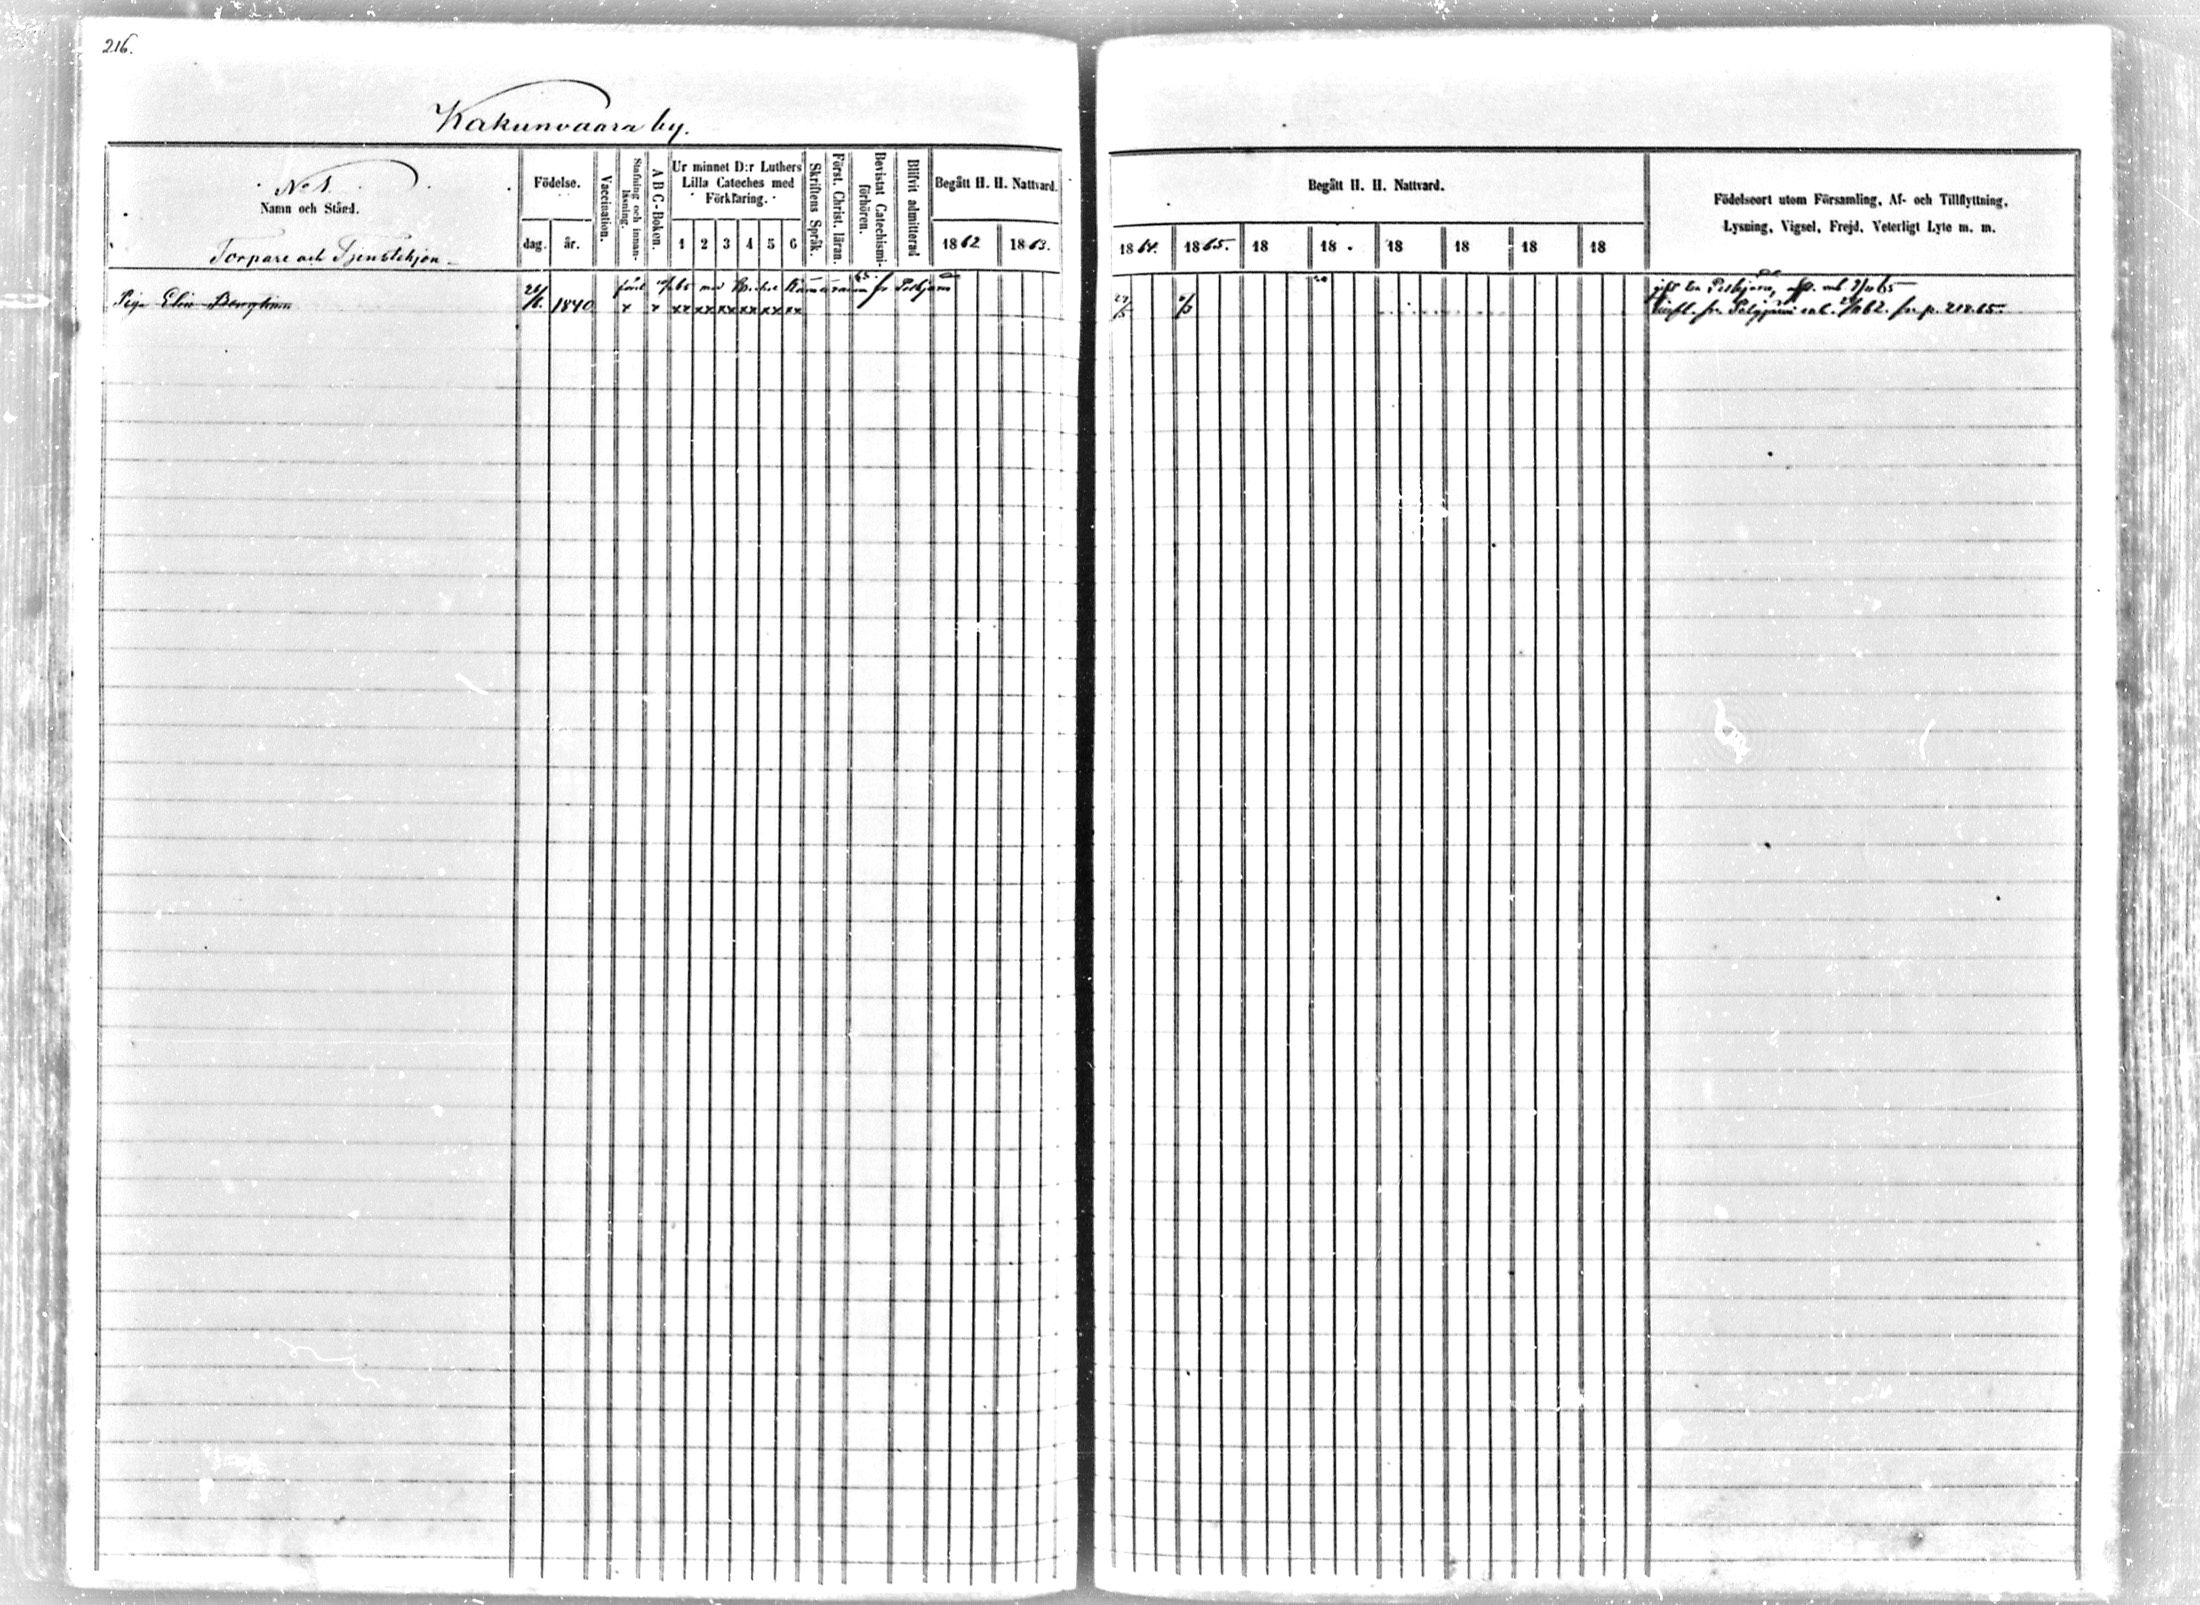 216.
Kakunvaara by.
No 1.
Namn och Stånd.
Torpare och Tjenstehjon
Födelse.
dag. år.
Vaccination.
Stafning och innanläsning.
A B C-Boken.
Ur minnet D:r Luthers
Lilla Cateches med
Förklaring.
1 2 3 4 5 6
Skriftens Språk.
Först. Christ. läran.
Bevistat Catechismiförhören.
Blifvit admitterad
Begått H. H. Nattvard.
1862 1863.
Begått H. H. Nattvard.
1864. 1865. 18 18 18 18 18 18
Födelseort utom Församling, Af- och Tillflyttning,
Lysning, Vigsel, Frejd, Veterligt Lyte m. m.
65. fr
Piga Elin 1840 x x xx xx xx xx xx xx
inflt. fr. 62. fr. p. 218.65.